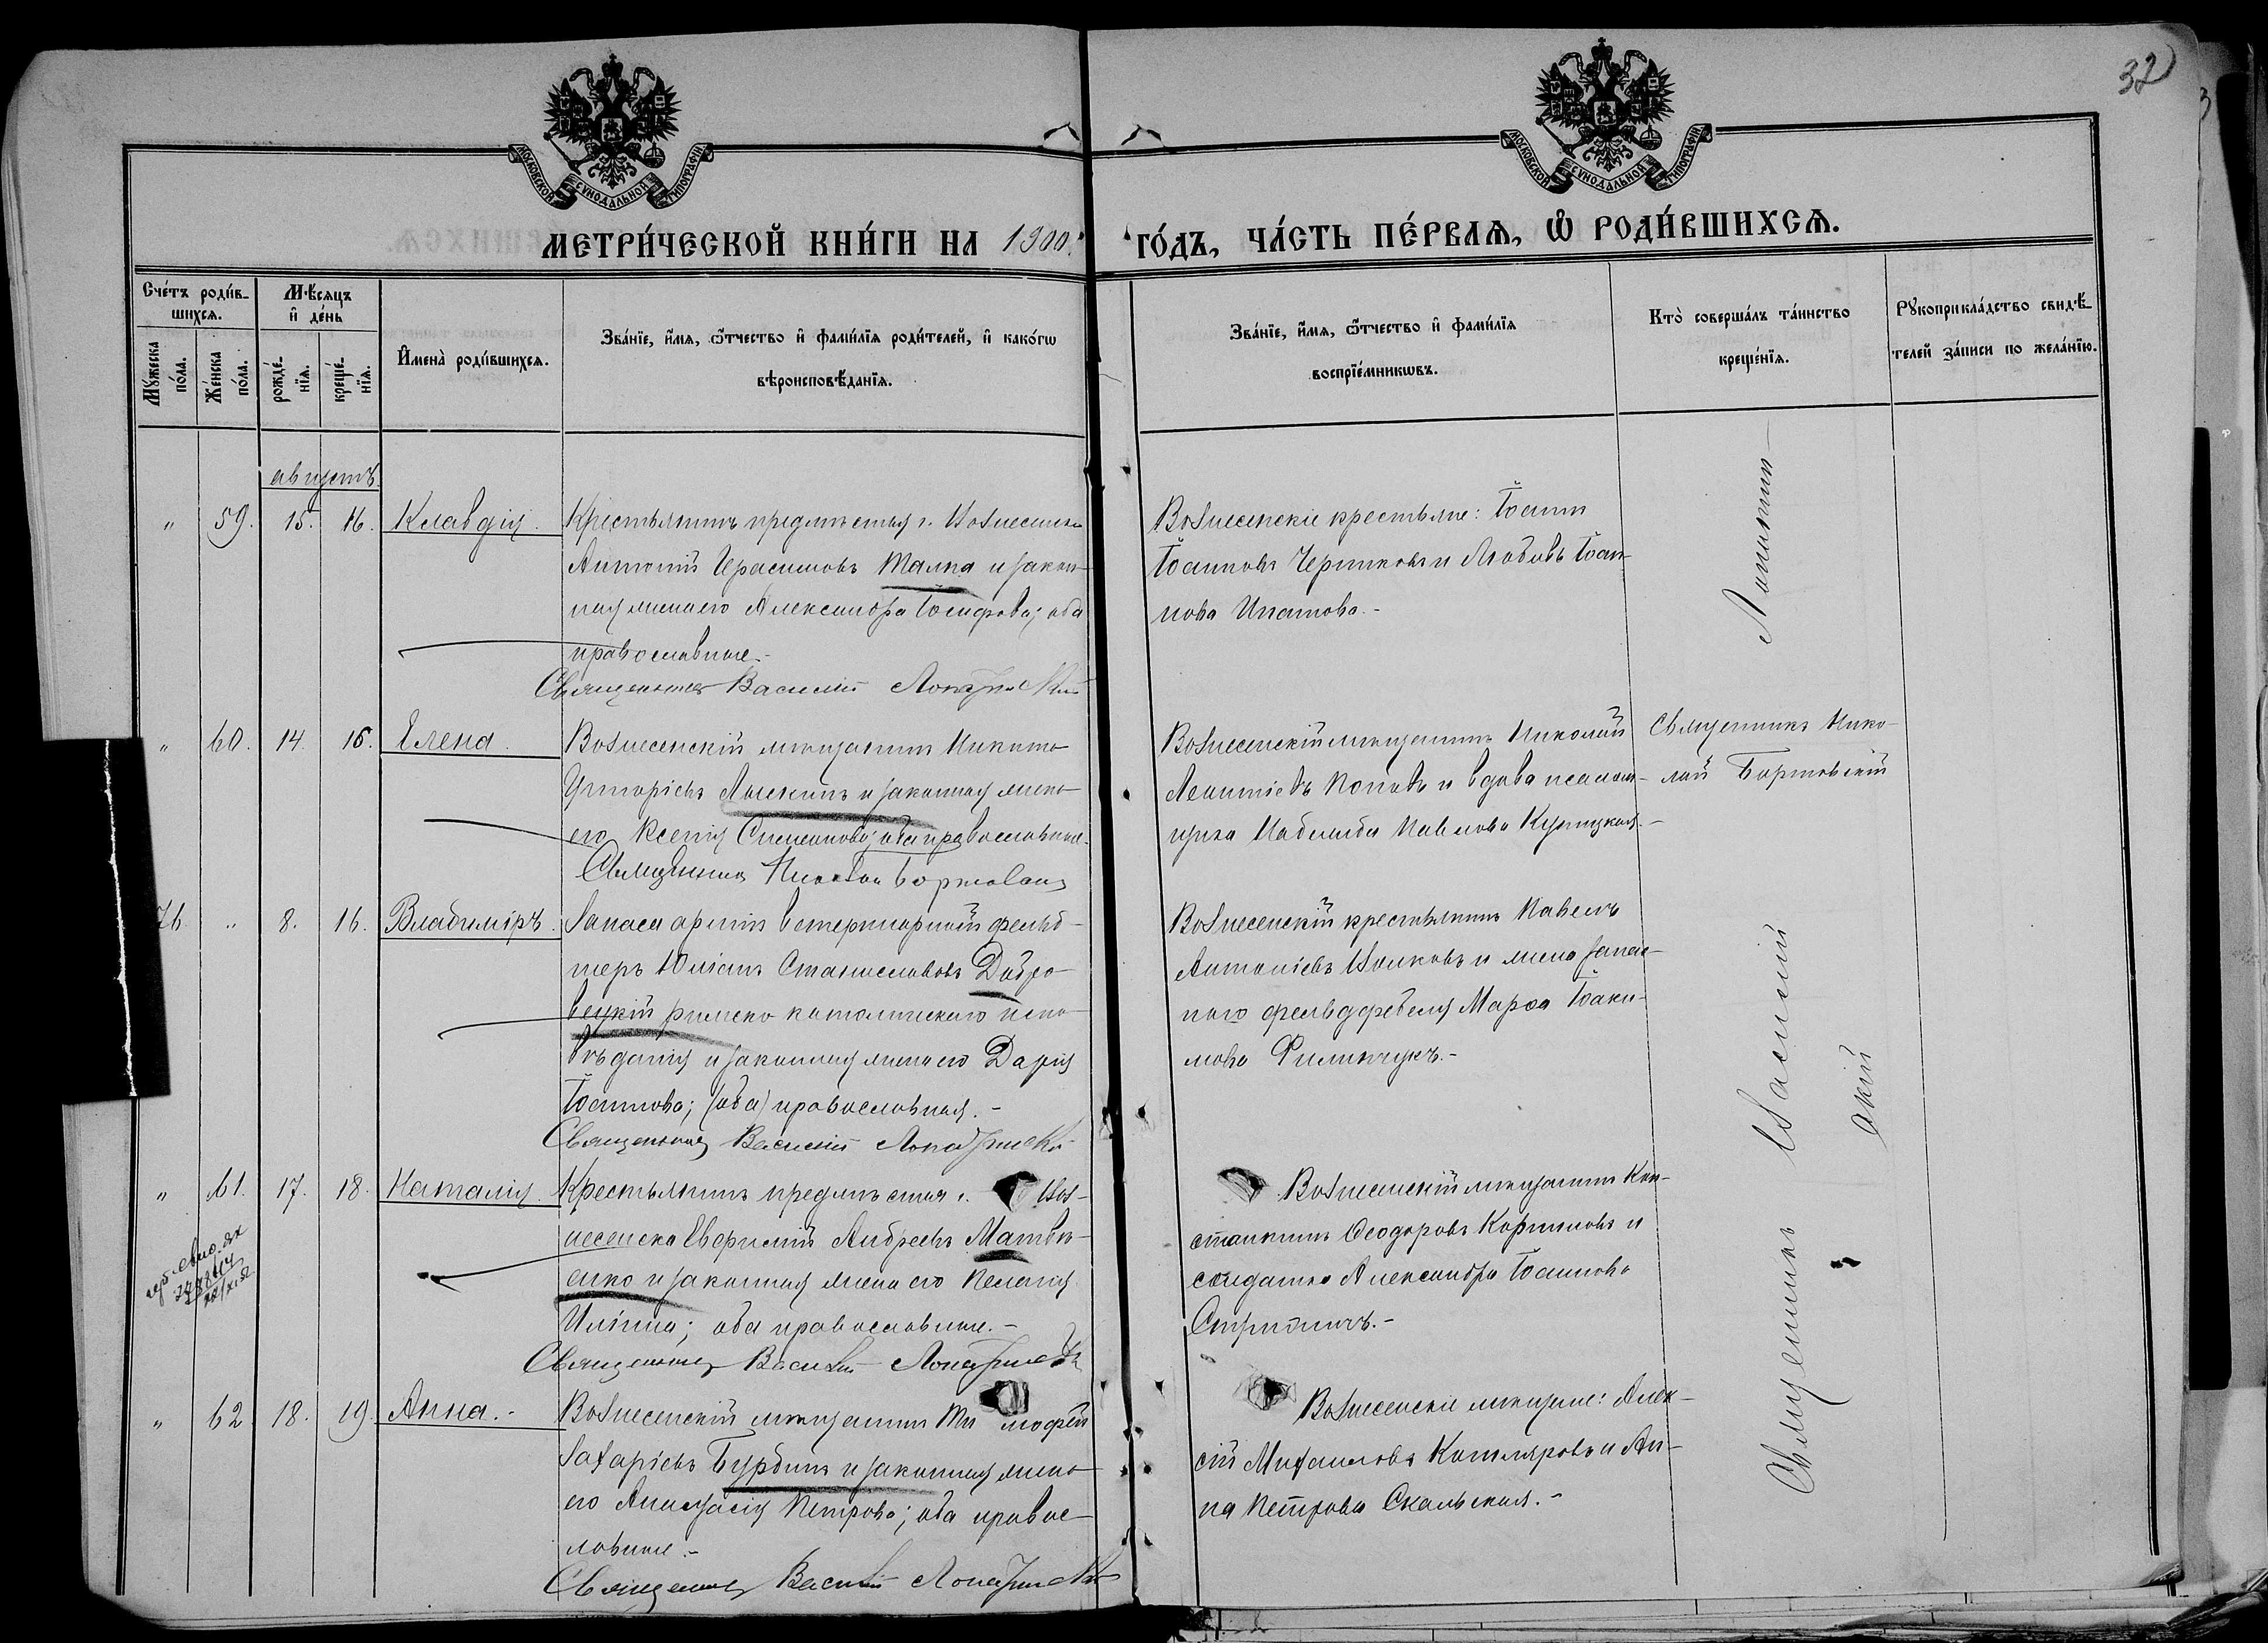 32
МОСКОВСКОЙ СѴНОДАЛЬНОЙ ТИПОГРАФІИ
МОСКОВСКОЙ СѴНОДАЛЬНОЙ ТИПОГРАФІИ
МЕТРИ́ЧЕСКОЙ КНИ́ГИ НА 1900.
ГО́ДЪ, ЧА́СТЬ ПЕ́РВАѦ, Ѿ РОДИ́ВШИХСѦ.
Сче́тъ роди́в-
шихсѧ.
Мꙋ́жеска
по́ла.
Же́нска
по́ла.
Мѣ́сѧцъ
и҆ де́нь
рожде́-
нїѧ.
креще́-
нїѧ.
И҆мена̀ роди́вшихсѧ.
Зва́нїе, и҆́мѧ, ѻ҆́тчество и҆ фами́лїѧ роди́телей, и҆ како́гѡ
вѣроисповѣ́данїѧ.
Зва́нїе, и҆́мѧ, ѻ҆́тчество и҆ фами́лїѧ
воспрїе́мникѡвъ.
Кто̀ соверша́лъ та́инство
креще́нїѧ.
Рꙋкоприкла́дство свидѣ́-
телей за́писи по жела́нїю.
августъ
" 59. 15. 16. Клавдія.
Крестьянинъ предмѣстья г. Вознесенска
Антоній Герасимовъ Талпа и закон-
ная жена его Александра Іосифова; оба
православные.-
Священникъ Василій
Вознесенскіе крестьяне: Іоаннъ
Іоанновъ Черниковъ и Любовь Іоан-
нова Ипатова.-
" 60. 14. 16. Елена.
Вознесенскій мѣщанинъ Никита
Григоріевъ и законная жена
его Ксенія Симеонова; оба православные.
Священникъ Николай Бортовскій
Вознесенскій мѣщанинъ Николай
Леонтіевъ Поповъ и вдова псалом-
щика Павлова
Священникъ Нико-
лай Бортовскій
76. " 8. 16. Владиміръ.
Запаса арміи ветеринарный фельд-
шеръ Юліанъ Станиславовъ Добро-
вецкій римско католическаго испо-
вѣданія и законная жена его Дарія
Іоаннова; (оба) православная.-
Священникъ Василій
Вознесенскій крестьянинъ Павелъ
Антоніевъ Волковъ и жена запас-
наго фельдфебеля Марѳа Іоаки-
мова Филипчукъ.-
" 61. 17. 18. Наталія.
Крестьянинъ предмѣстья г. Воз-
несенска Евфимій Андреевъ Матвѣ-
енко и законная жена его Пелагія
Иліина; оба православные.-
Священникъ Василій
Вознесенскій мѣщанинъ Кон-
стантинъ Ѳеодоровъ и
солдатка Александра Іоаннова
" 62. 18. 19. Анна.-
Вознесенскій мѣщанинъ Тимофей
Захаріевъ Бурдинъ и законная жена
его Анастасія Петрова; оба правос-
лавные.-
Священникъ Василій
Вознесенскіе мѣщане: Алек-
сій Михаиловъ Котляровъ и Ан-
на Петрова Скальская.-
Священникъ Василій